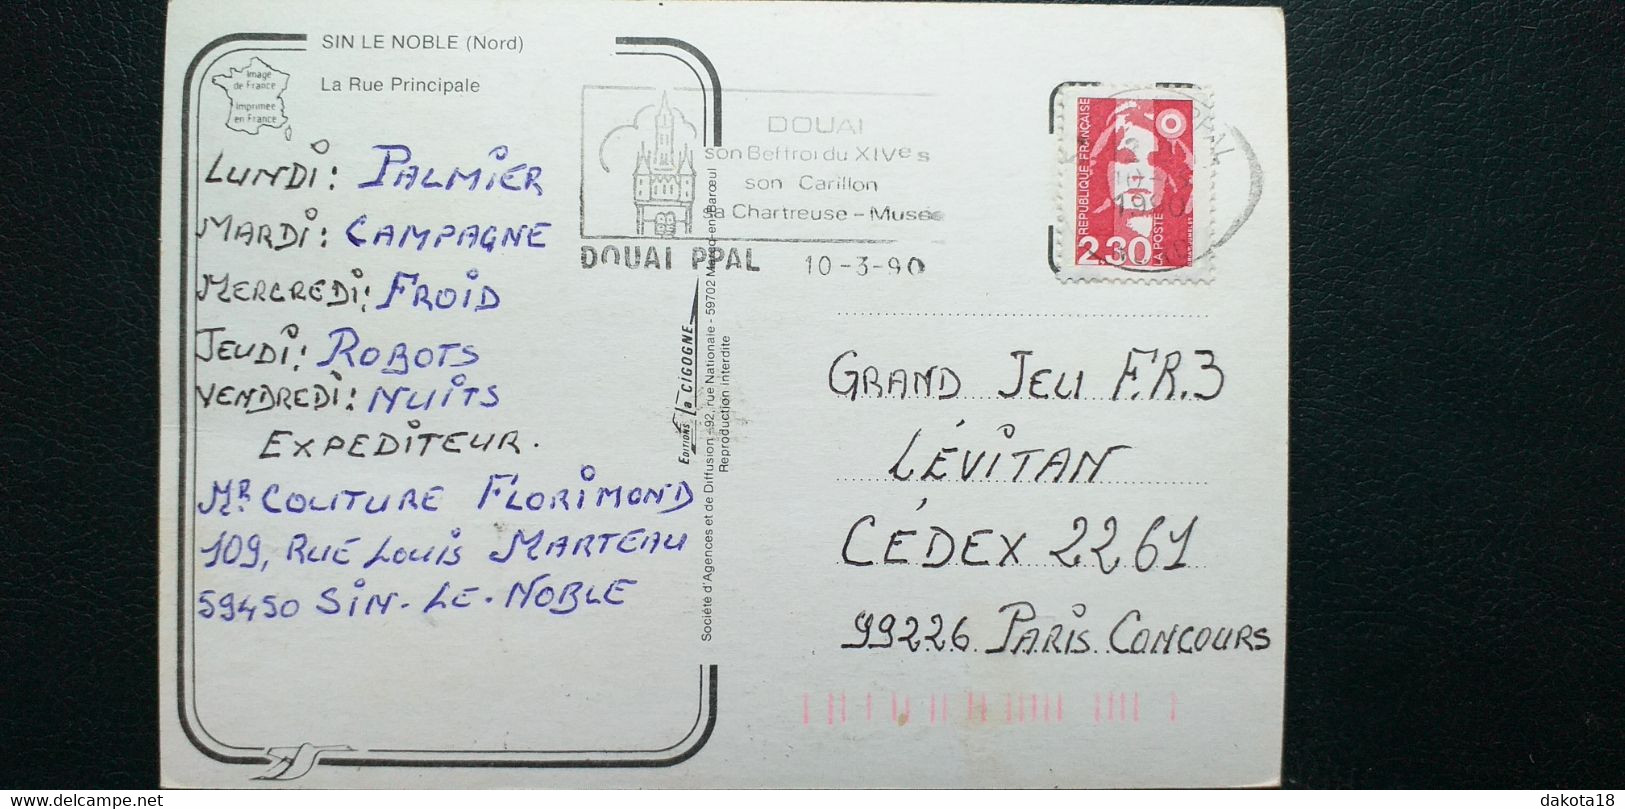 SIN LE NOBLE (Nord)
La Rue Principale
Image
de France
Imprimée
en France
LUNDI: PALMIER
MARDI: CAMPAGNE
MERCREDI: FROID
JEUDI: ROBOTS
VENDREDI: NUITS
EXPEDITEUR.
MR. COUTURE FLORIMOND
109, RUE LOUIS MARTEAU
59450 SIN-LE-NOBLE
DOUAI
son Beffroi du XIVe s
son Carillon
la Chartreuse - Musée
DOUAI PPAL 10-3-90
EDITIONS La CIGOGNE
Société d'Agences et de Diffusion - 92, rue Nationale - 59702 Marcq-en-Barœul
Reproduction Interdite
REPUBLIQUE FRANÇAISE
2,30
LA POSTE
1990
GRAND JEU F.R.3
LÉVITAN
CÉDEX 2261
99226 PARIS CONCOURS
delcampe.net
dakota18